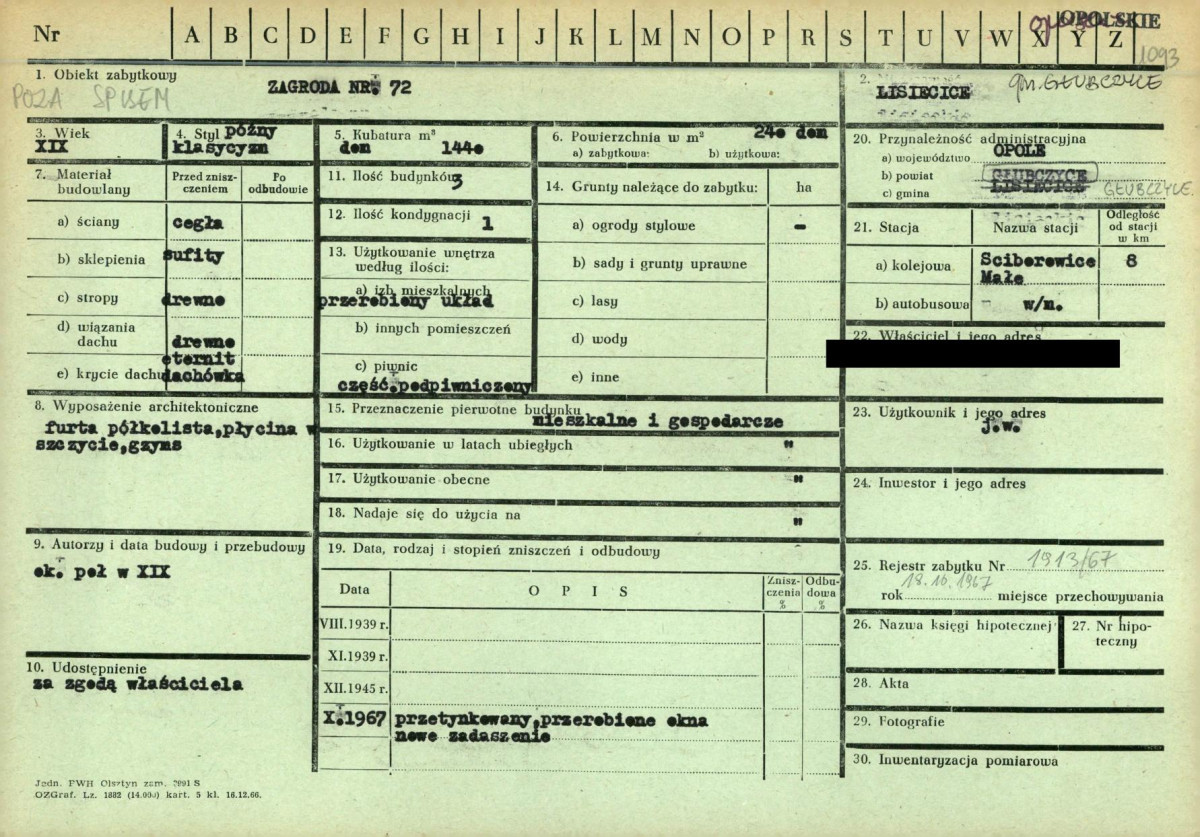 OPOLSKIE
Nr A B C D E F G H I J K L M N O P R S T U V W X Y Z
1093
1. Obiekt zabytkowy
ZAGRODA NR. 72
POZA SPISEM
2.
LISIECICE
gm. GŁUBCZYCE
3. Wiek
XIX
4. Styl późny
klasycyzm
5. Kubatura m³
dom 1440
6. Powierzchnia w m²
240 dom
a) zabytkowa: b) użytkowa:
7. Materiał budowlany
Przed zniszczeniem
Po odbudowie
a) ściany cegła
b) sklepienia sufity
c) stropy drewno
d) wiązania dachu drewno
e) krycie dachu eternit
dachówka
8. Wyposażenie architektoniczne
furta półkolista,płycina w
szczycie,gzyms
9. Autorzy i data budowy i przebudowy
ok. poł w XIX
10. Udostępnienie
za zgodą właściciela
11. Ilość budynków 3
12. Ilość kondygnacji 1
13. Użytkowanie wnętrza
według ilości:
a) izb mieszkalnych
przerobiony układ
b) innych pomieszczeń
c) piwnic
część.podpiwniczony
14. Grunty należące do zabytku: ha
a) ogrody stylowe -
b) sady i grunty uprawne
c) lasy
d) wody
e) inne
15. Przeznaczenie pierwotne budynku
mieszkalne i gospodarcze
16. Użytkowanie w latach ubiegłych "
17. Użytkowanie obecne "
18. Nadaje się do użycia na "
19. Data, rodzaj i stopień zniszczeń i odbudowy
Data OPIS Zniszczenia % Odbudowa %
VIII.1939 r.
XI.1939 r.
XII.1945 r.
X.1967 przetynkowany,przerobione okna
nowe zadaszenie
20. Przynależność administracyjna
a) województwo OPOLE
b) powiat GŁUBCZYCE
c) gmina LISIECICE GŁUBCZYCE.
21. Stacja Nazwa stacji Odległość od stacji w km
a) kolejowa Sciborowice 8
Małe
b) autobusowa w/m.
22. Właściciel i jego adres
23. Użytkownik i jego adres
j.w.
24. Inwestor i jego adres
25. Rejestr zabytku Nr 1913/67
18.10.1967
rok miejsce przechowywania
26. Nazwa księgi hipotecznej
27. Nr hipoteczny
28. Akta
29. Fotografie
30. Inwentaryzacja pomiarowa
Jedn. PWH Olsztyn zam. 2991 S
OZGraf. Lz. 1882 (14.000) kart. 5 kl. 16.12.66.